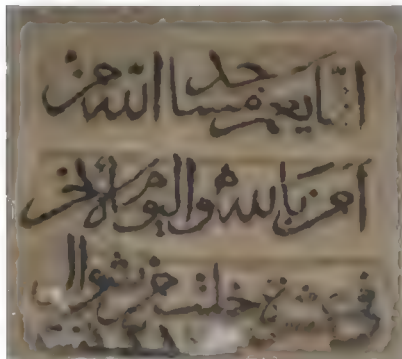 انما يعمر مساجد الله من
امن بالله واليوم الاخر
خلت من شوال